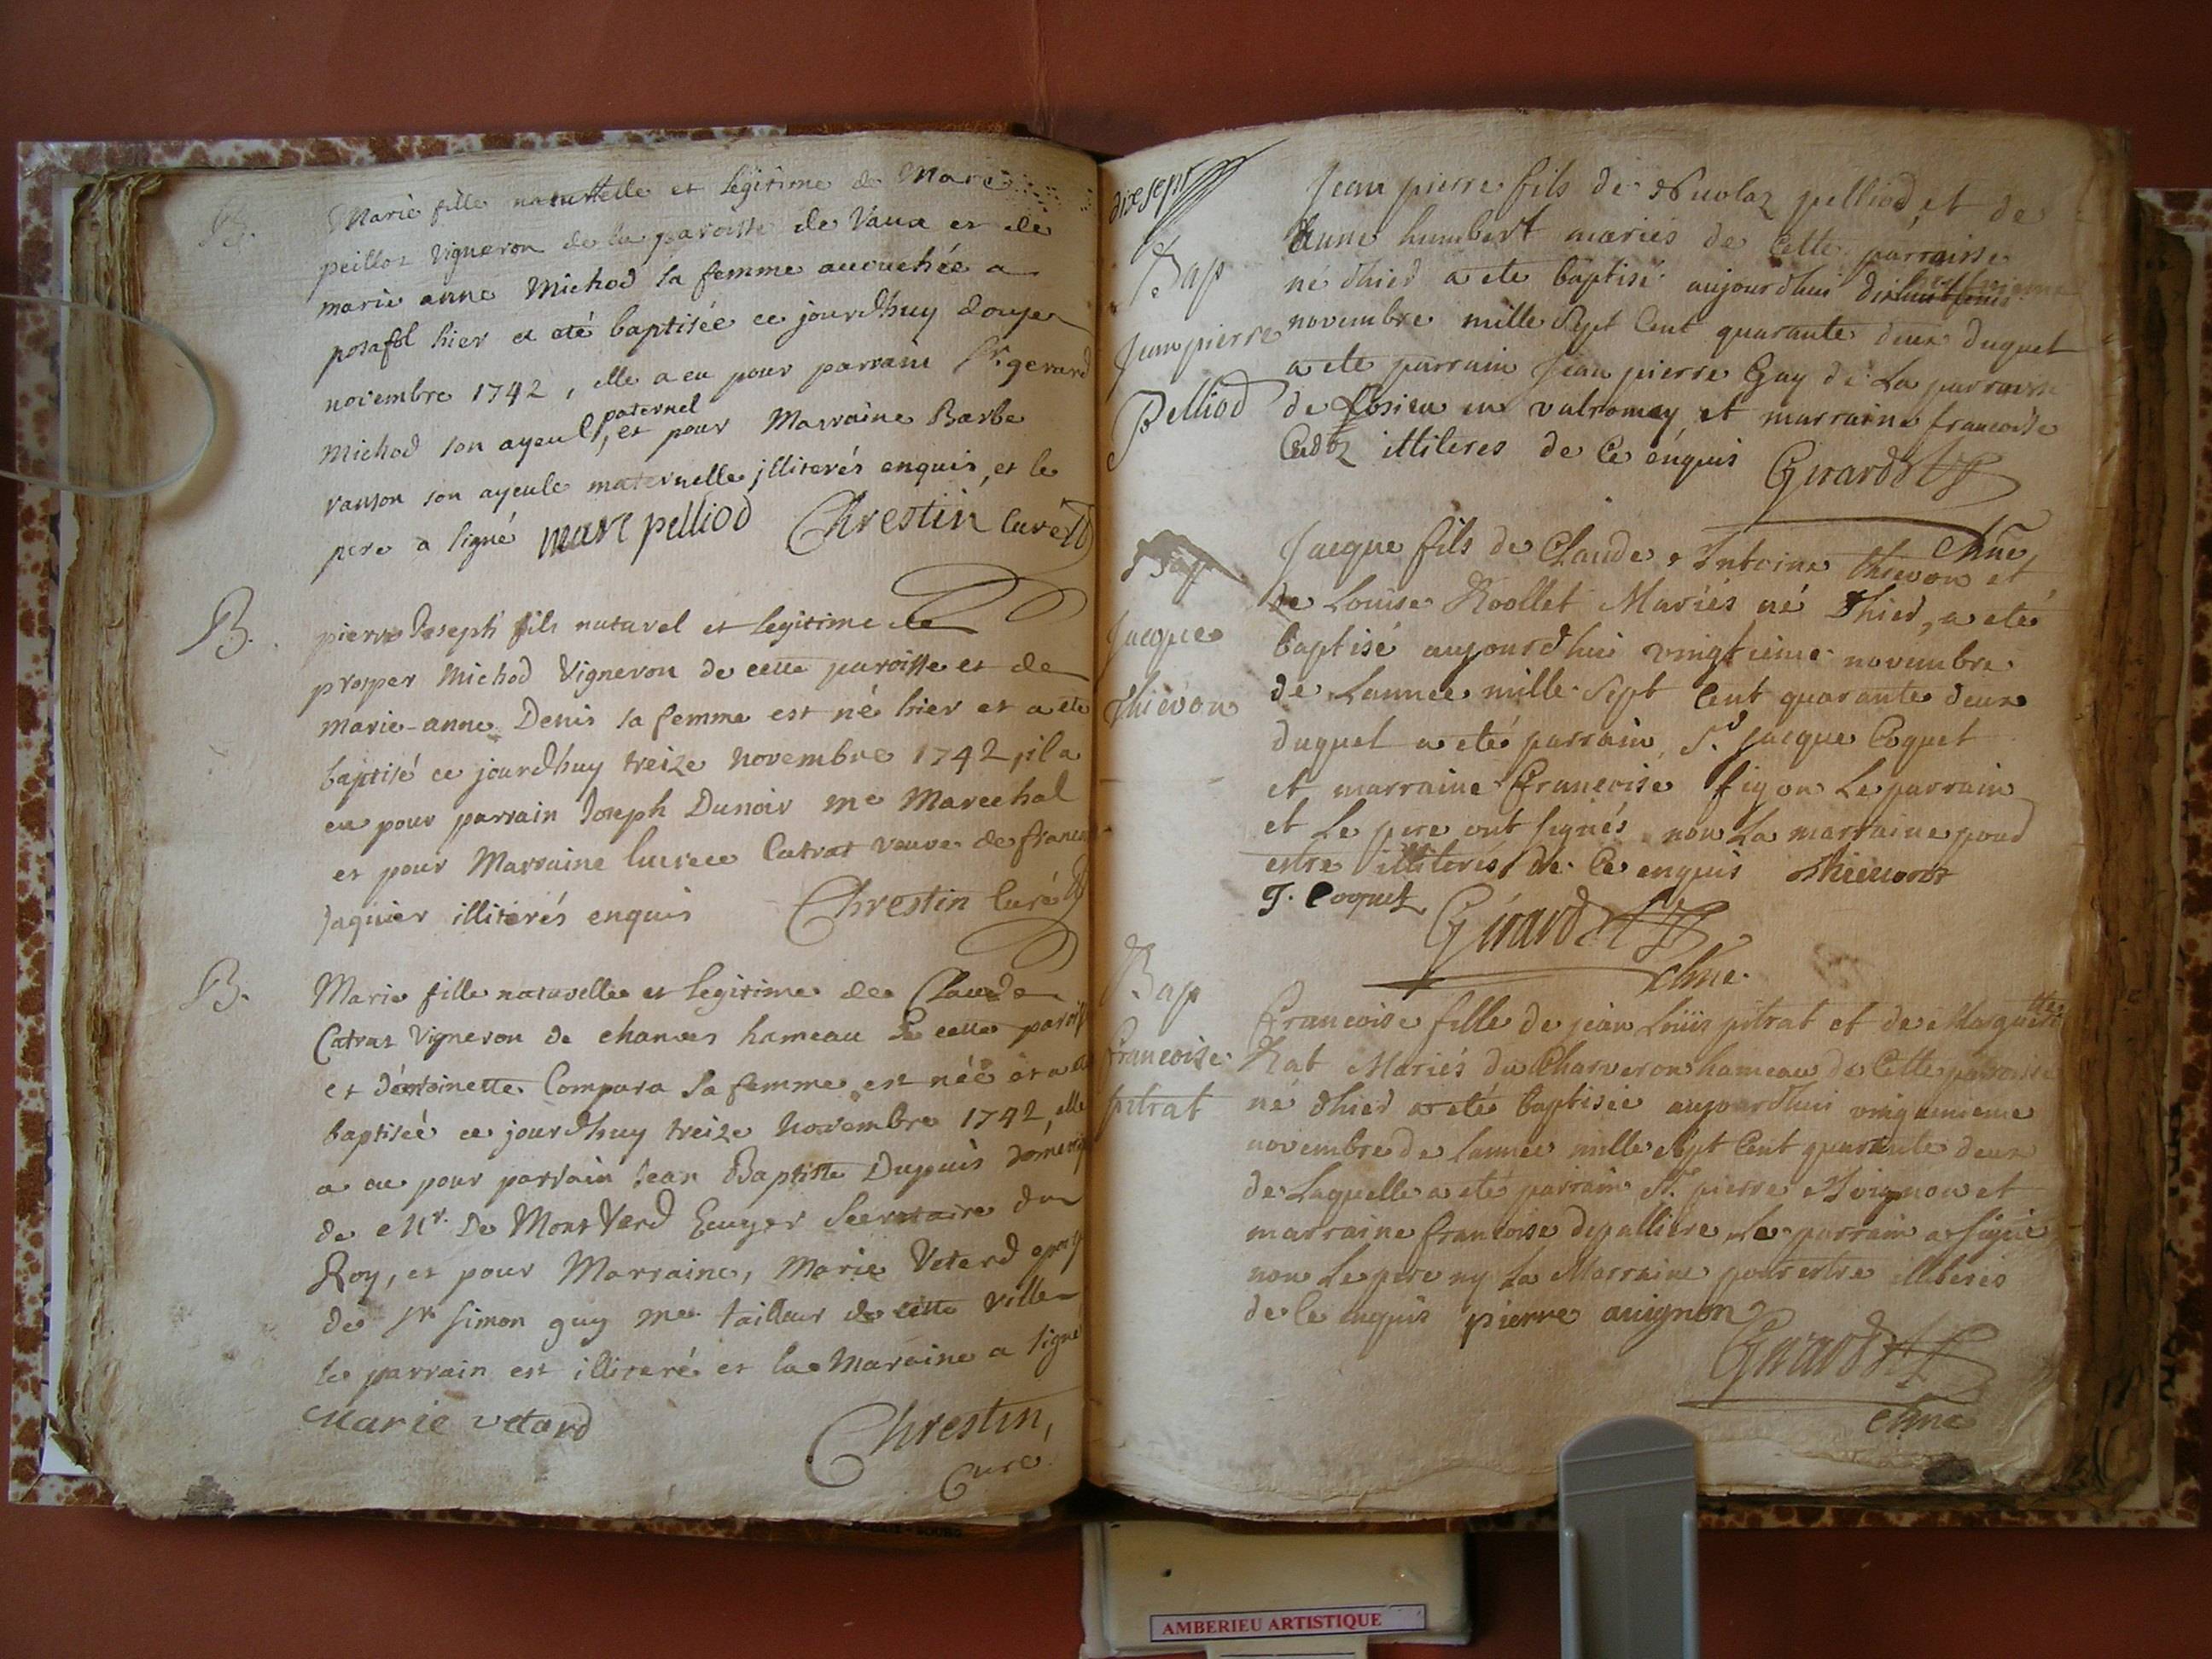 B.
Marie fille naturelle et legitime de Marc
peillot vigneron de la paroisse de Vaux et de
marie anne Michod sa femme accouchée a
posafol hier et eté baptisée ce jourdhuy douze
novembre 1742, elle a eu pour parrain Sr. gerard
Michod son ayeul paternel, et pour Marraine Barbe
ranson son ayeule maternelle jlliterés enquis, et le
pere a signé marc pelliod Chrestin Curé
B.
pierre Joseph fils naturel et legitime de
prosper Michod Vigneron de cette paroisse et de
marie-anne Denis sa femme est né hier et a eté
baptisé ce jourdhuy treize novembre 1742, il a
eu pour parrain Joseph Dunoir me Marechal
et pour Marraine lucrece Catrat veuve de
Jaquier illiterés enquis Chrestin Curé
B.
Marie fille naturelle et legitime de Claude
Catrat Vigneron de chanves hameau de cette
et dántoinette Compara sa femme est née et a
baptiséé ce jourdhuy treize Novembre 1742, elle
a eu pour parrain Jean Baptiste Dupuis
de Mr. De MontVerd Ecuyer Secretaire du
Roy, et pour Marraine, Marie Vetard
de Sr Simon guy me tailleur de cette ville
le parrain est illiteré et la Maraine a signé
Marie vetard Chrestin,
Curé
dixsept
Bap
Jean pierre
Pelliod
Jean pierre fils de Nicolaz pelliod, et de
Anne humbert mariés de Cette parraisse
né dhier a ete baptisé aujourdhui
novembre mille Sept Cent quarante deux duquel
a ete parrain Jean pierre Guy de La parraisse
de en valromey et marraine francoise
illiteres de Ce enquis Girard
Bap
Jacque
Thievon
Jacque fils de Claude Antoine thievon et
de Louise Roollet Mariés né dhier, a eté
baptisé aujourdhui vingtieme novembre
de Lannee mille Sept Cent quarante deux
duquel a eté parrain, Sr. Jacque Coquet
et marraine Francoise figon Le parrain
et Le pere ont signés non La marraine pour
estre illiterés de Ce enquis Thievon
J. Coquet Girard
Bap
francoise
pitrat
Francoise fille de jean Loüis pitrat et de Marguerittes
Rat Mariés du Charveron hameau de Cette paroisse
né dhier a eté baptisée aujourdhui
novembre de lannée mille Sept Cent quarante deux
de Laquelle a eté parrain Sr. pierre Avignon et
marraine francoise depalliere Le parrain a signé
non Le pere ny La Marraine pour estre illiterés
de Ce enquis pierre auignon
Girard
AMBERIEU ARTISTIQUE